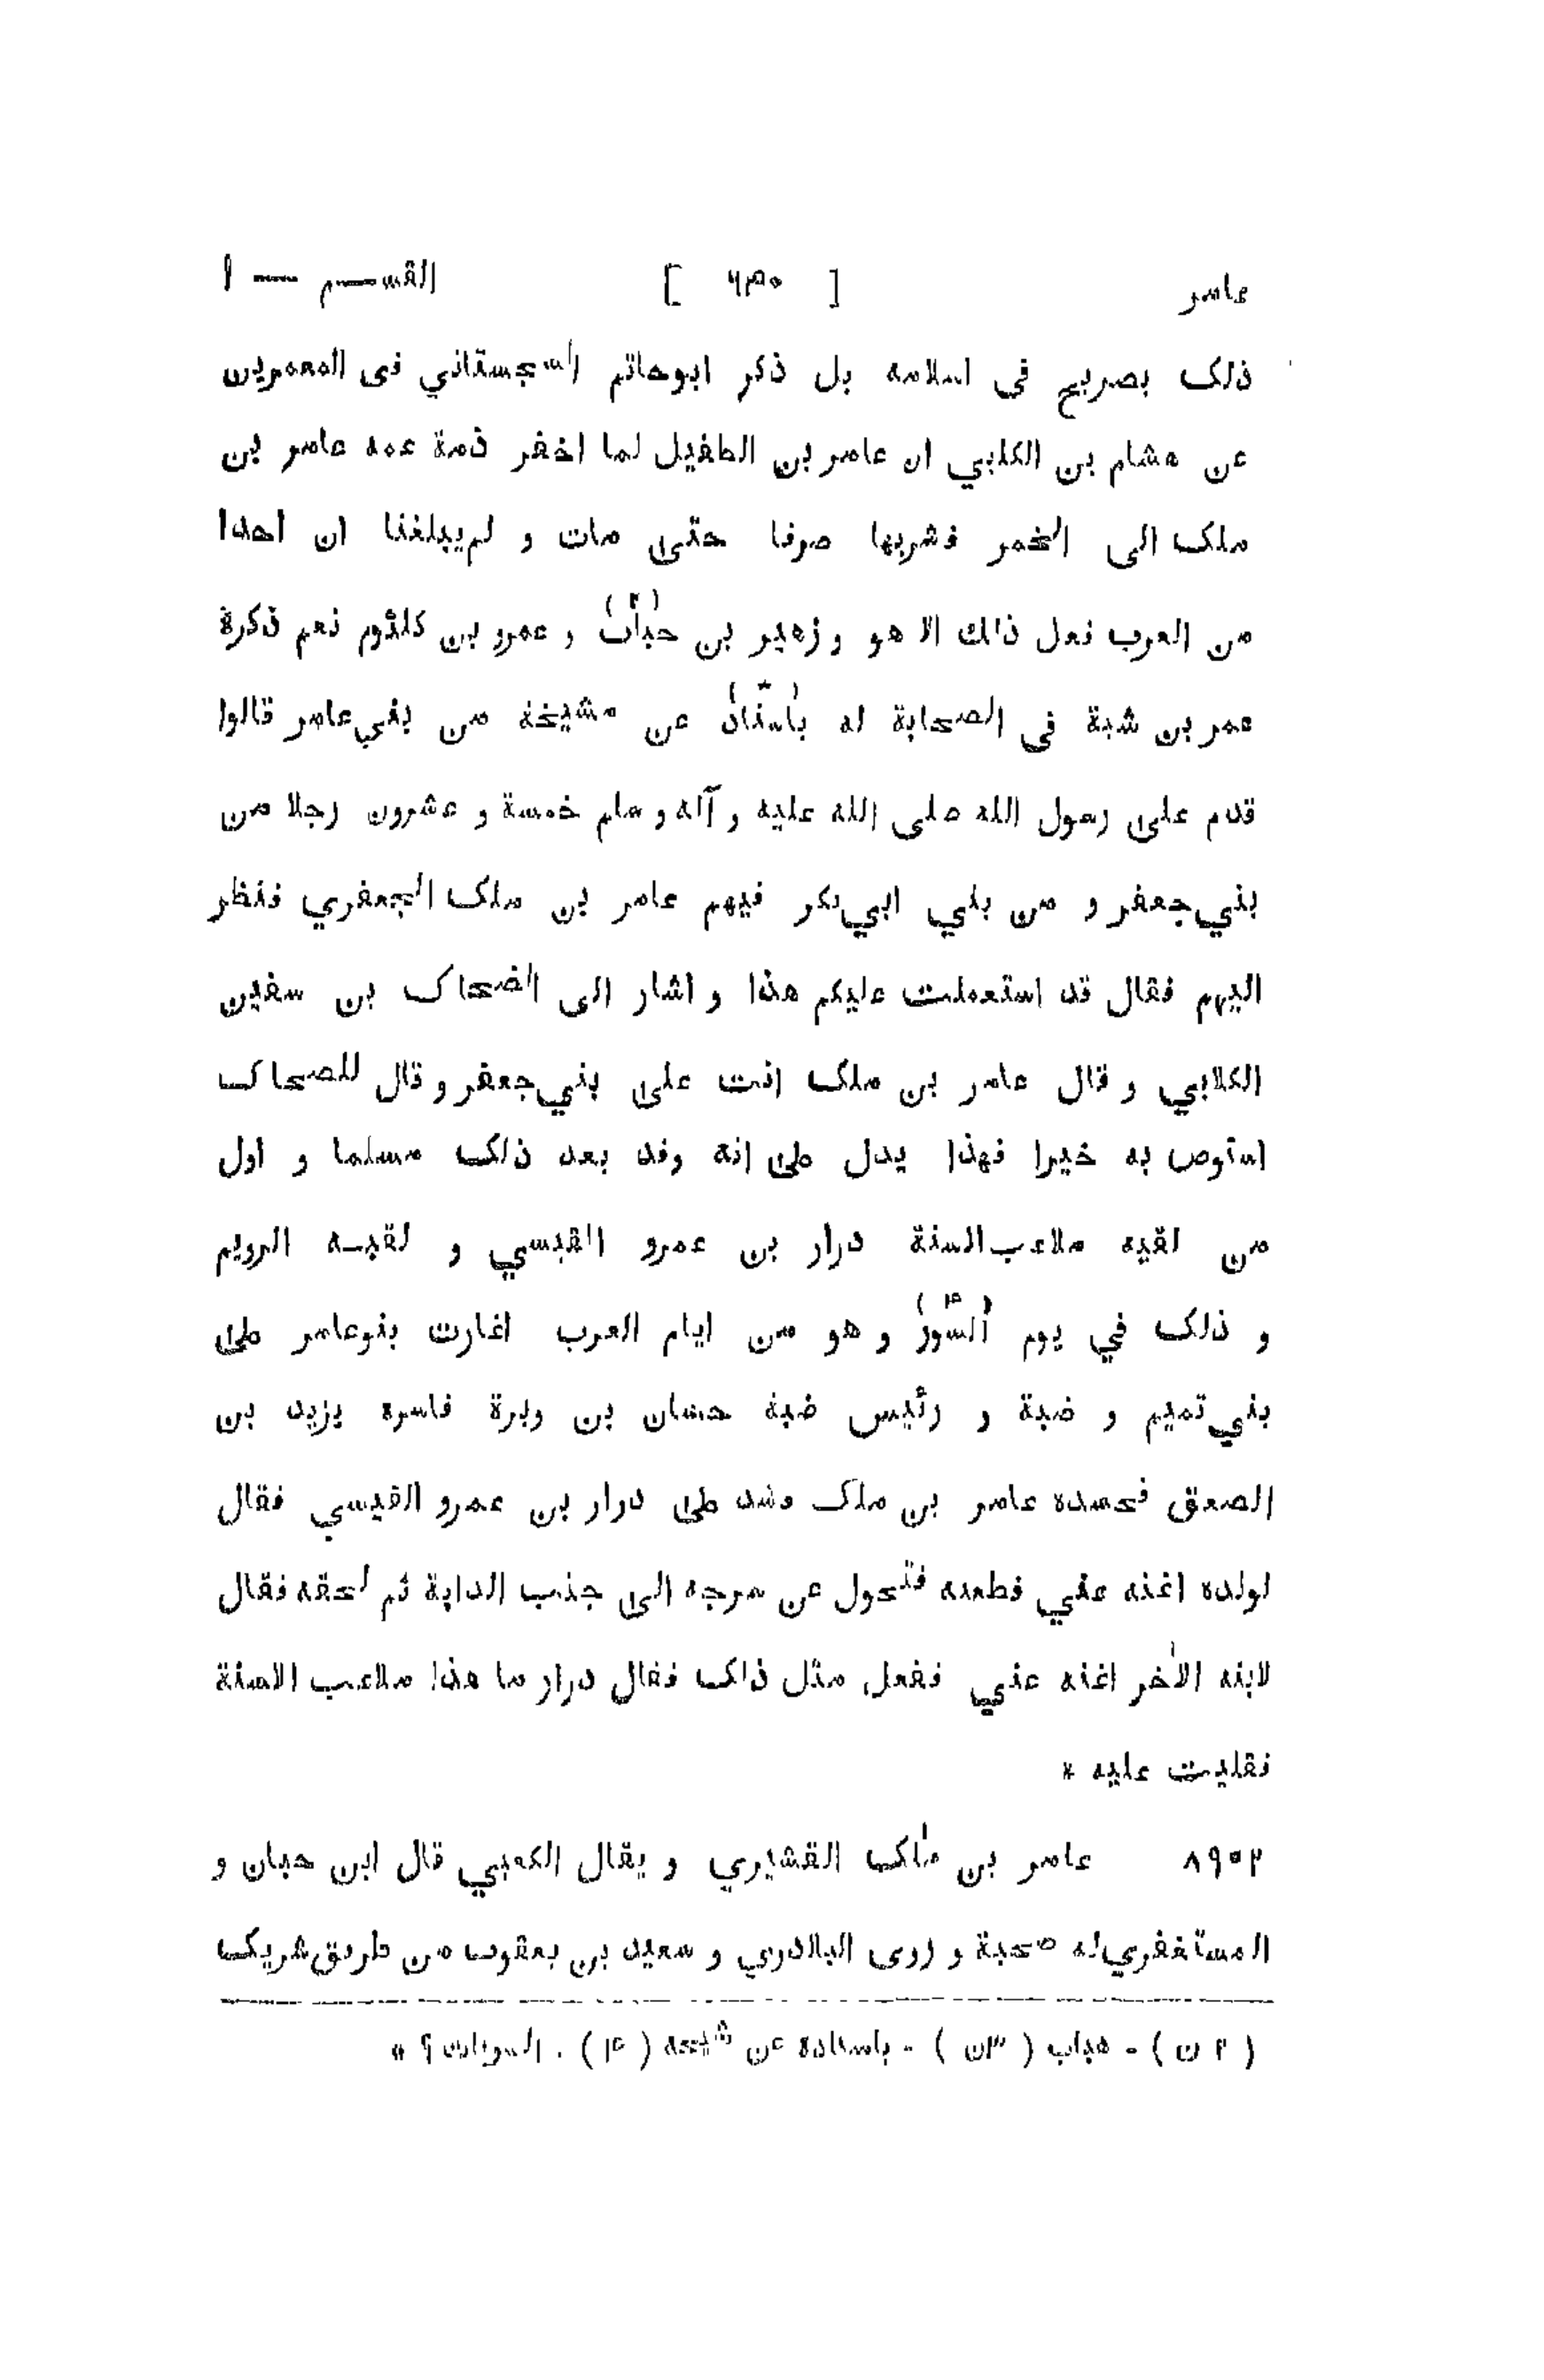 عامر [ ٦٣٠ ] القسم — ١
ذلك بصريح فى اسلامه بل ذكر ابوحاتم السجستاني فى المعمرين
عن هشام بن الكلبي ان عامر بن الطفيل لما اخفر ذمة عمه عامر بن
ملك الى الخمر فشربها صرفا حتى مات و لم يبلغنا ان احدا
من العرب فعل ذلك الا هو و زهير بن حباب (٢) و عمرو بن كلثوم نعم ذكرة
عمر بن شبة فى الصحابة له باسناد (٣) عن مشيخة من بني عامر قالوا
قدم على رسول الله صلى الله عليه و آله و سلم خمسة و عشرون رجلا من
بني جعفر و من بني ابي بكر فيهم عامر بن ملك الجعفري فنظر
اليهم فقال قد استعملت عليكم هذا و اشار الى الضحاك بن سفين
الكلابي و قال عامر بن ملك انت على بني جعفر و قال للضحاك
استوص به خيرا فهذا يدل على انه وفد بعد ذلك مسلما و اول
من لقيه ملاعب السنة درار بن عمرو القيسي و لقبه الرويم
و ذلك في يوم السور (٤) و هو من ايام العرب اغارت بنو عامر على
بني تميم و ضبة و رئيس ضبة حسان بن وبرة فاسره يزيد بن
الصعق فحسده عامر بن ملك وشد على درار بن عمرو القيسي فقال
لولده اغنه عني فطعنه فتحول عن سرجه الى جنب الدابة ثم لحقه فقال
لابنه الآخر اغنه عني ففعل مثل ذلك فقال درار ما هذا ملاعب الاسنة
فقلبت عليه *
٨٩٥٢ عامر بن ملك القشيري و يقال الكعبي قال ابن حبان و
المستغفري له صحبة و روى البلاذري و سعيد بن يعقوب من طريق شريك
( ٢ ن ) - هباب ( ٣ن ) - باسناده عن شيخة ( ٤ ) . السوبان ؟ *